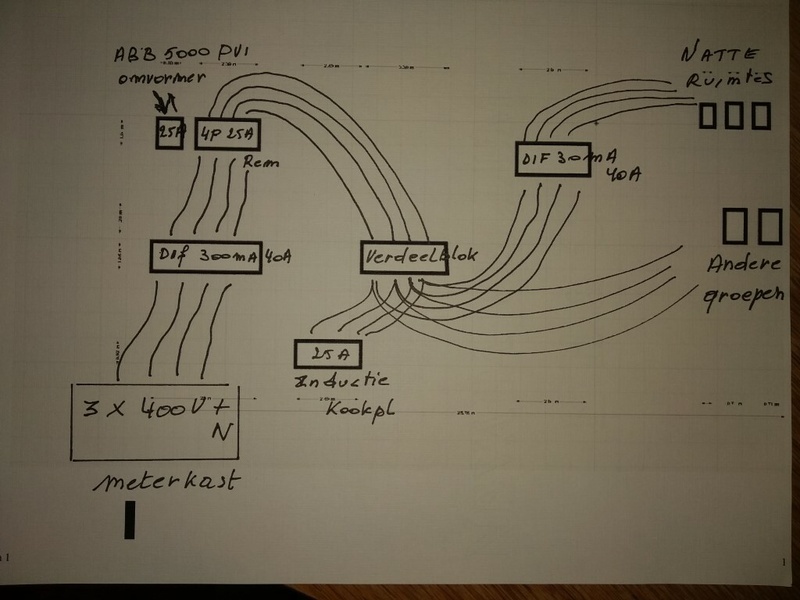 ABB 5000 PVI
omvormer
NATTE
Ruimtes
25A
4P 25A
Rem
DIF 300mA
40A
Dif 300mA 40A
Verdeelblok
Andere
groepen
25A
Inductie
Kookpl
3 x 400V +
N
meterkast
1